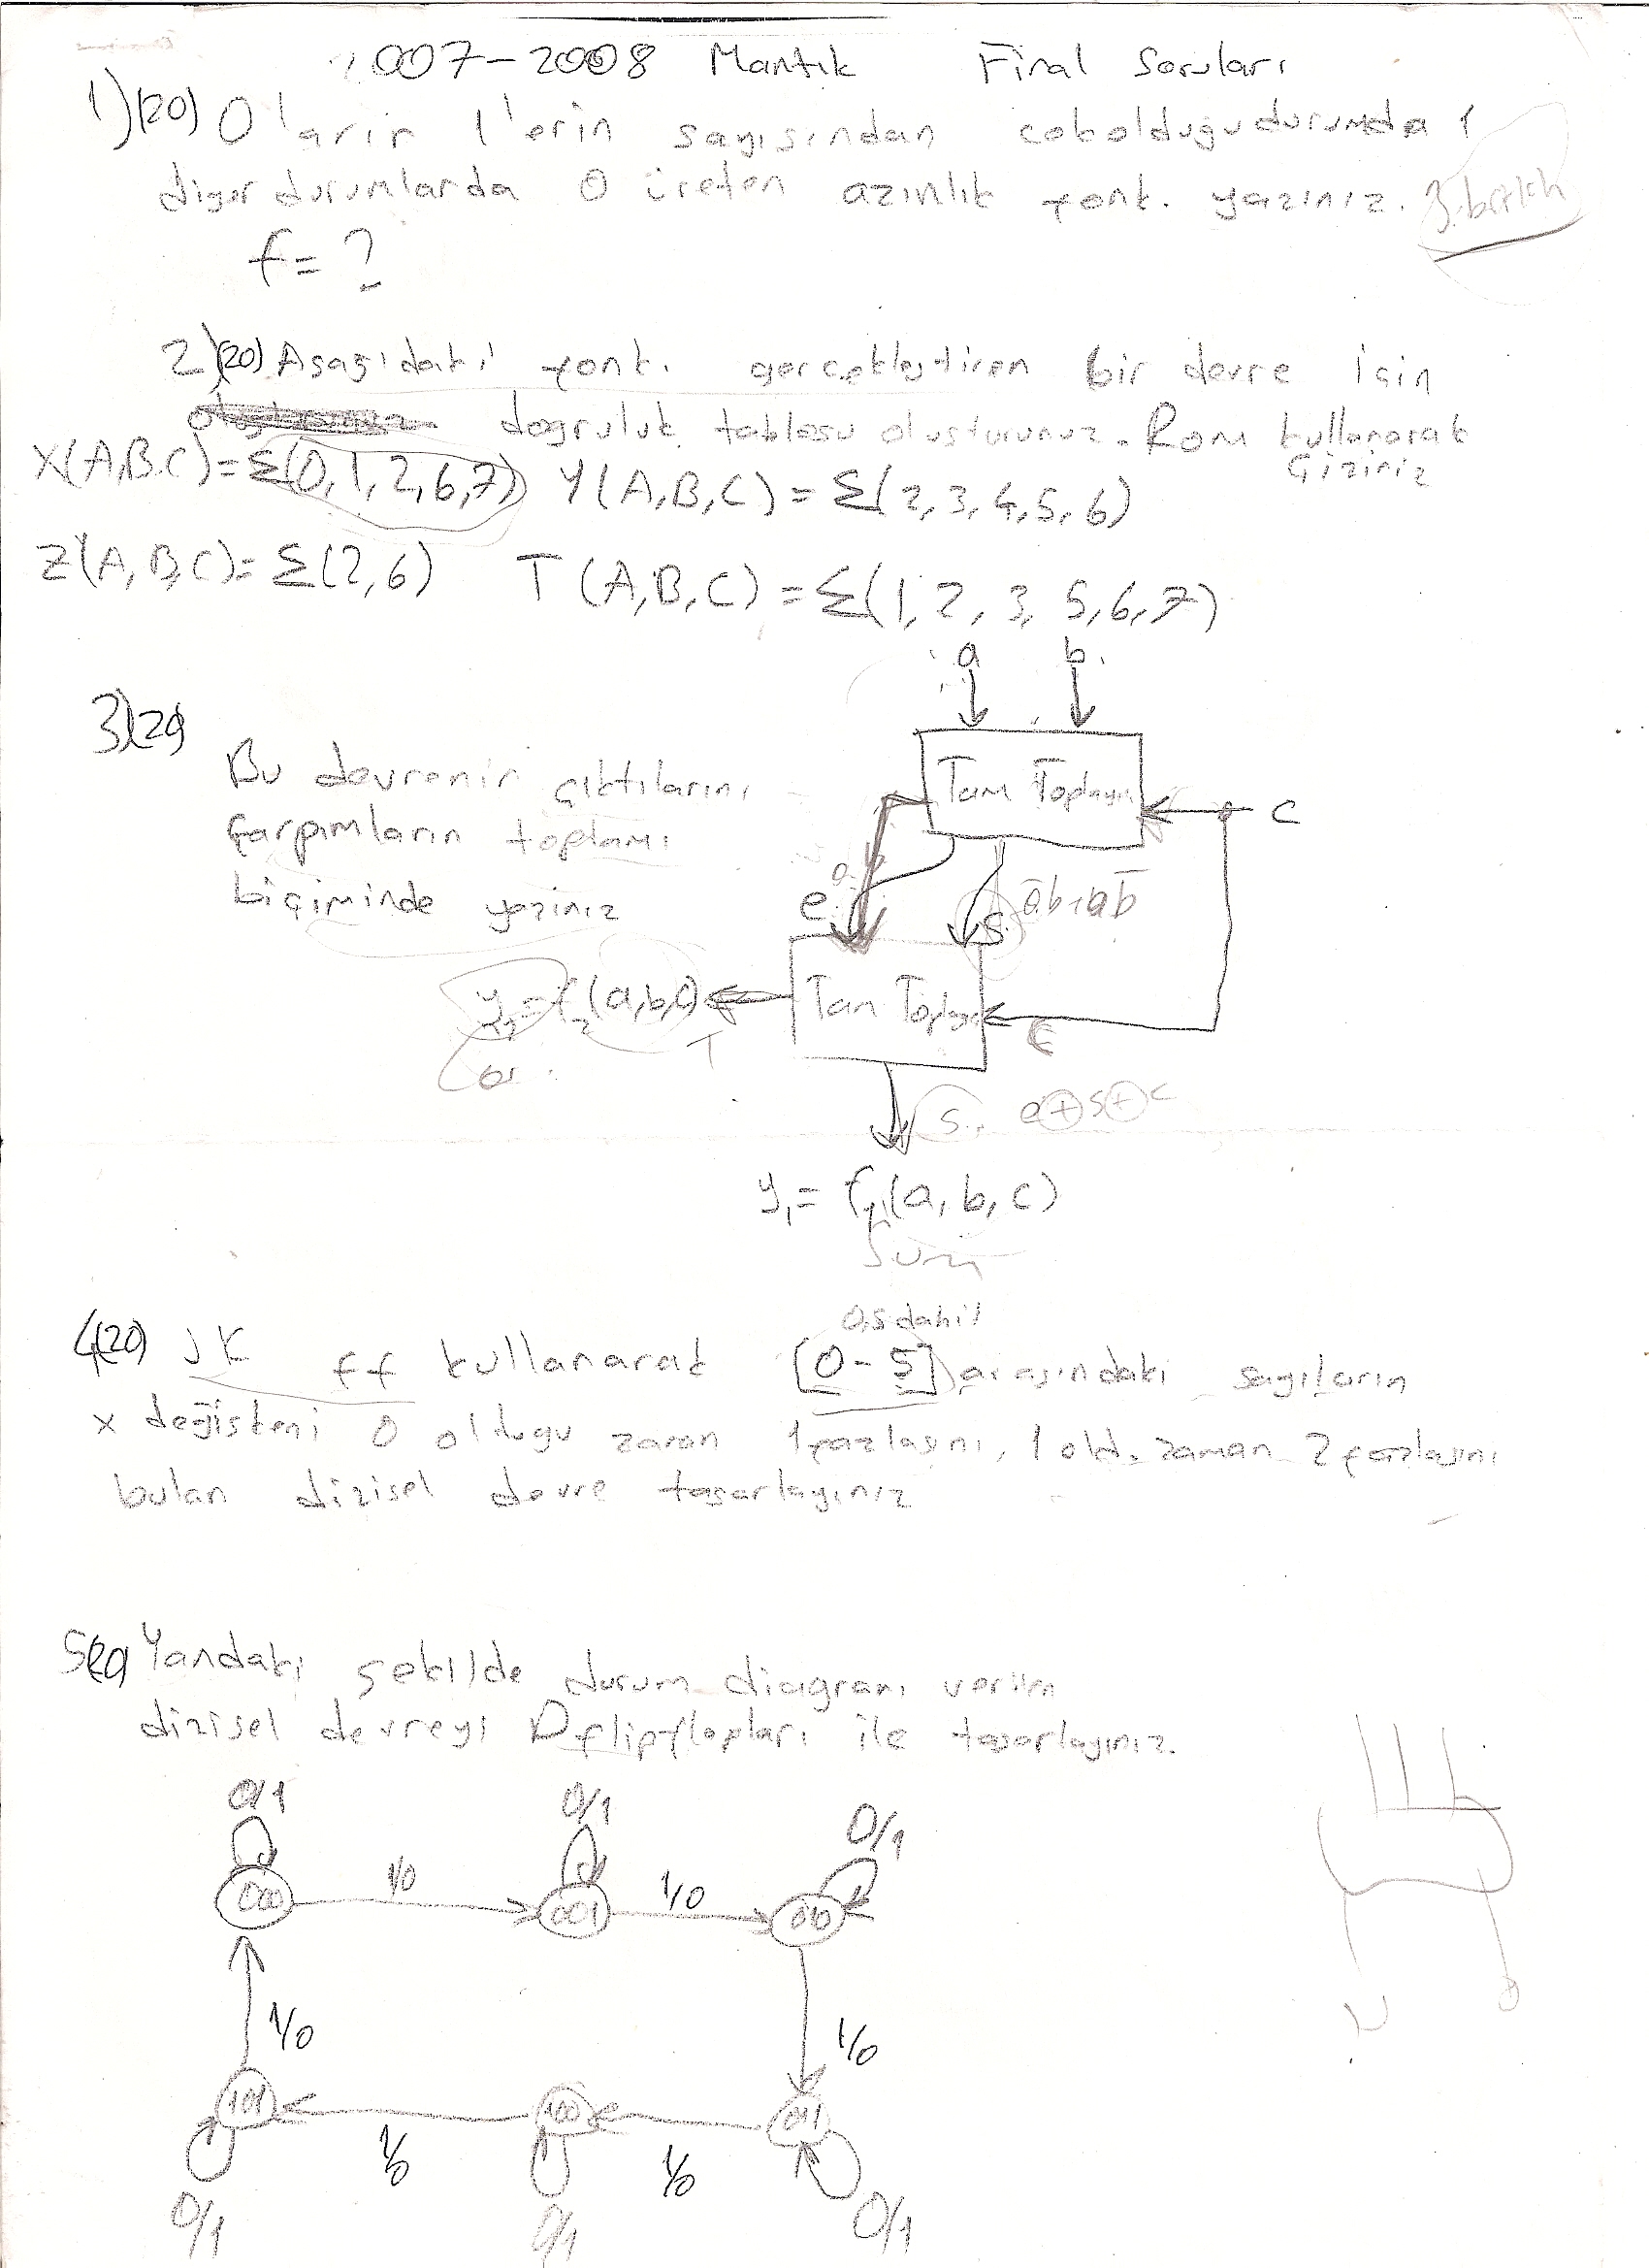 007-2008 Mantık Final Soruları
1)(20) 0'ların 1'erin sayısından cok olduğu durumda 1
diger durumlarda 0 üreten azınlık fonk. yazınız.
f=?
2)(20) Aşağıdaki fonk. gerçekleştiren bir devre için
dogruluk tablosu olusturunuz. Rom kullanarak
çiziniz
X(A,B,C)=Σ(0,1,2,6,7) Y(A,B,C)=Σ(2,3,4,5,6)
Z(A,B,C)=Σ(2,6) T(A,B,C)=Σ(1,2,3,5,6,7)
a b
3)(20
Bu devrenin çıktılarını
Çarpımların toplamı
biçiminde yazınız
Tam Toplayıcı
C
e
S
āb+ab̄
y₂=f₂(a,b,c)
T
Tam Toplayıcı
C
S
e⊕s⊕c
y₁=f₁(a,b,c)
Sum
0,5 dahil
4(20) JK ff kullanarak [0-5] arasındaki sayıların
x değişkeni 0 oldugu zaman 1 fazlasını, 1 old. zaman 2 fazlasını
bulan dizisel devre tasarlayınız
5(20 Yandaki şekilde durum diagramı verilen
dizisel devreyi D flipflopları ile tasarlayınız.
0/1 0/1 0/1
000 1/0 001 1/0 010
1/0 1/0
101 1/0 100 1/0 011
0/1 0/1 0/1